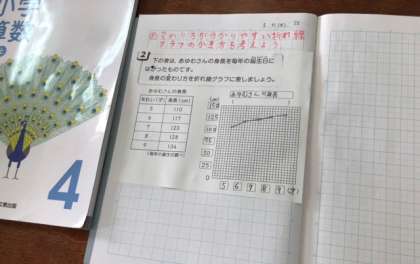 小学
算数
4
めかわり方が分かりやすい折れ線
グラフのかき方を考えよう。
2
下の表は、あゆむさんの身長を毎年の誕生日に
はかったものです。
身長の変わり方を折れ線グラフに表しましょう。
あゆむさんの身長
年れい(才) 身長(cm)
5 110
6 117
7 123
8 128
9 134
(毎年の誕生日に調べ)
あゆむさんの身長
(cm)
150
125
100
75
50
25
0
5 6 7 8 9 (才)